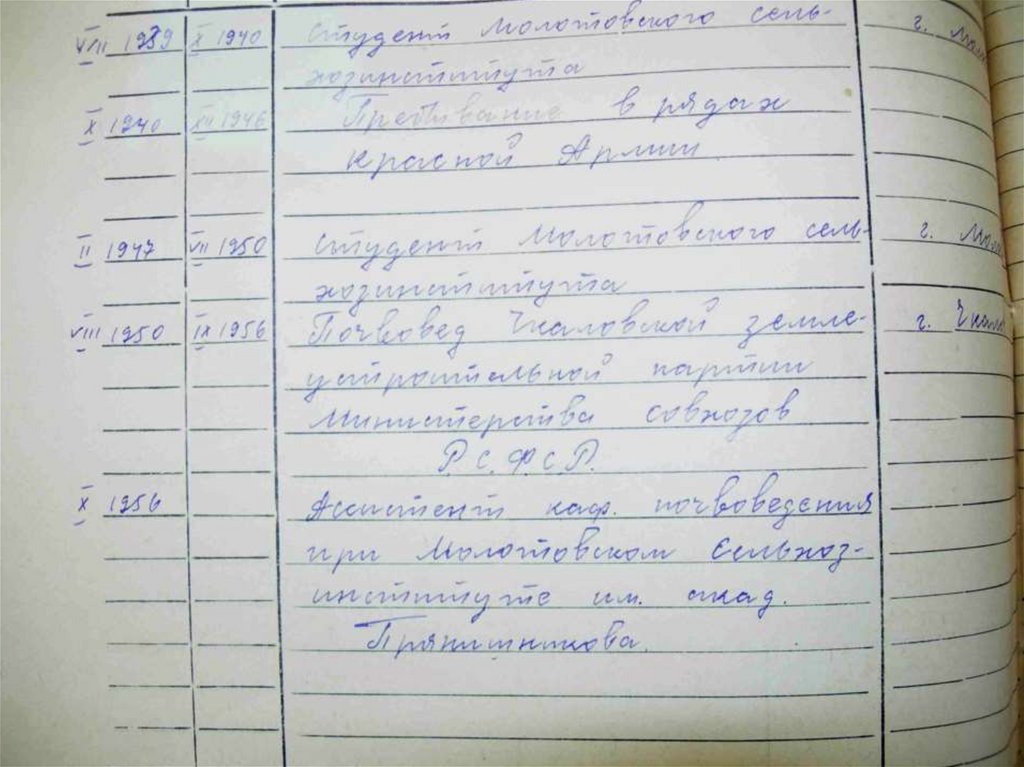 VIII 1939 X 1940 Студент Молотовского сель- г. Моло
хозинститута
X 1940 XII 1946 Пребывание в рядах
Красной Армии.
II 1947 VII 1950 Студент Молотовского сель- г. Моло
хозинститута
VIII 1950 IX 1956 Почвовед Чкаловской земле- г. Чкал
устроительной партии
Министерства совхозов
Р.С.Ф.С.Р.
X 1956 Ассистент каф. почвоведения
при Молотовском Сельхоз-
институте им. акад.
Прянишникова.